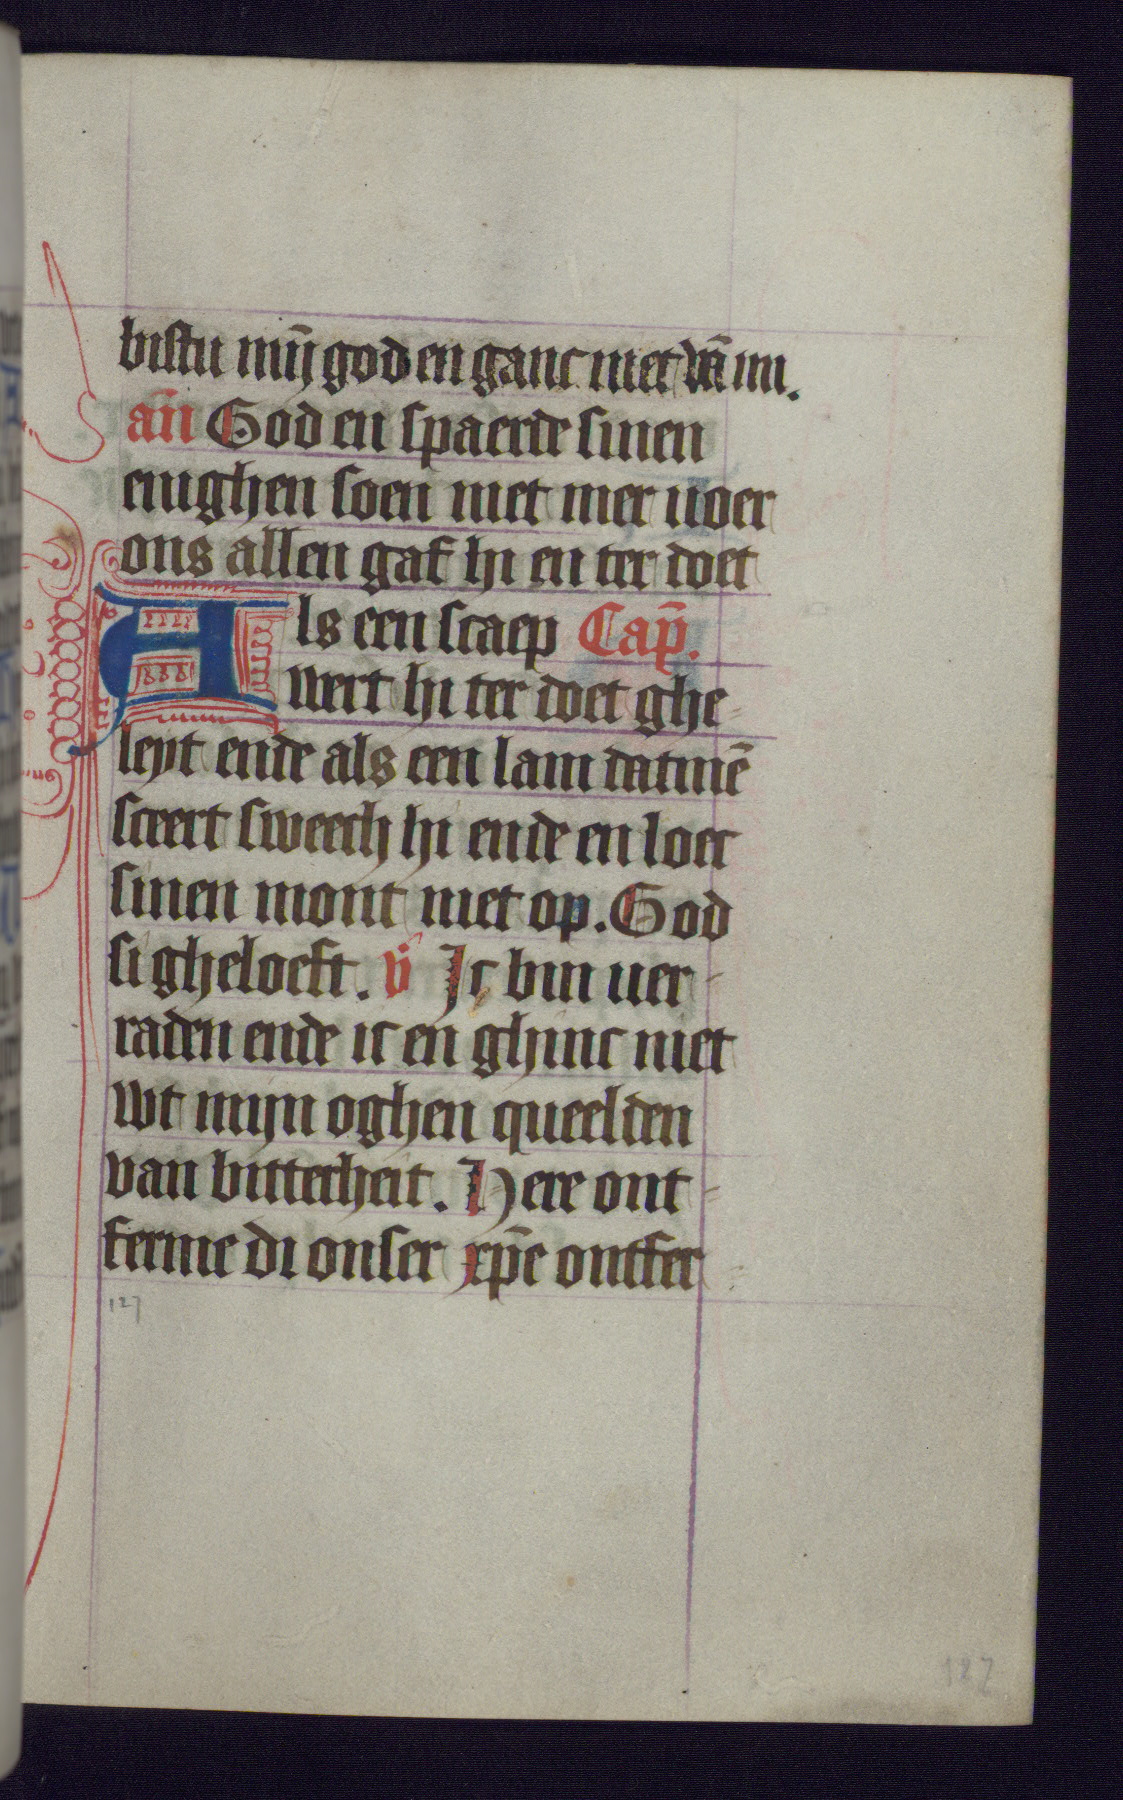 bistu mijn̄ god en ganc niet vā mi.
an̄ God en spaerde sinen
enighen soen niet mer uoer
ons allen gaf hi en ter doet
Als een scaep Cap̄.
wert hi ter doet ghe-
leyt ende als een lam datmē
sceert sweech hi ende en loec
sinen mont niet op. God
si gheloeft. v̄ Ic bin uer-
raden ende ic en ghinc niet
wt mijn oghen queelden
van bitterheit. Here ont-
ferme di onser xp̄e ontfer-
127
127